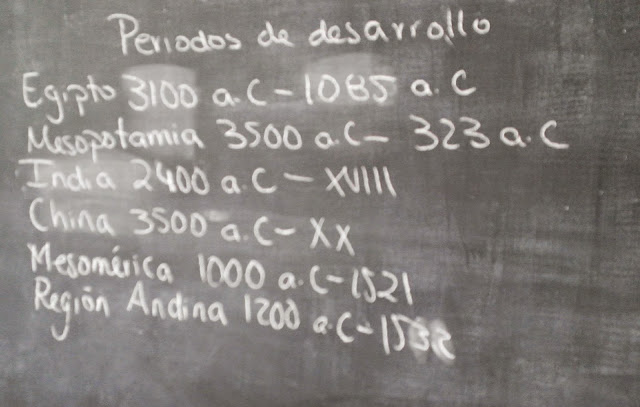 Periodos de desarrollo
Egipto 3100 a.C - 1085 a.C
Mesopotamia 3500 a.C - 323 a.C
India 2400 a.C - XVIII
China 3500 a.C - XX
Mesomérica 1000 a.C - 1521
Región Andina 1200 a.C - 1532